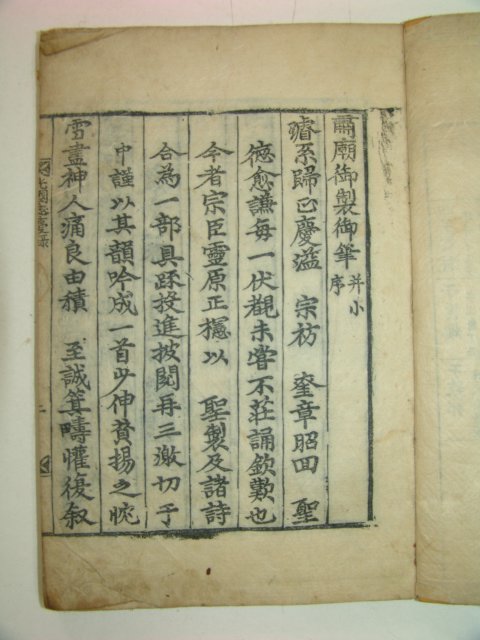 肅廟御製御筆 并小序
璿系歸正慶溢 宗祊 奎章昭回 聖
德愈謙每一伏觀未嘗不莊誦欽歎也
今者宗臣靈原正櫶以 聖製及諸詩
合為一部具疏投進披閱再三激切于
中謹以其韻吟成一首少伸賛揚之忱
雪盡神人痛良由積 至誠箕疇懽復叙
光國志慶錄
二